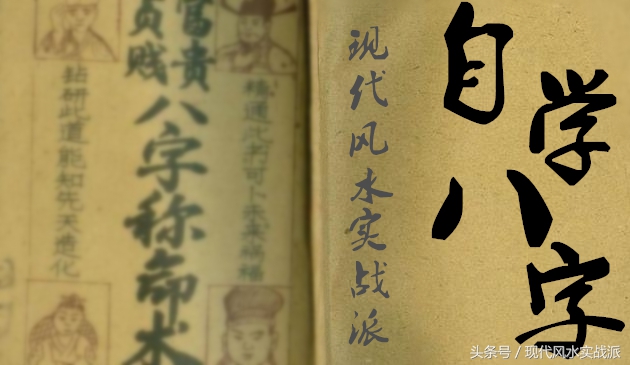 钻研此道能知先天造化
富貴
贫贱
八字称命术
精通此术可卜未来祸福
现代风水实战派
自学
八字
头条号 / 现代风水实战派